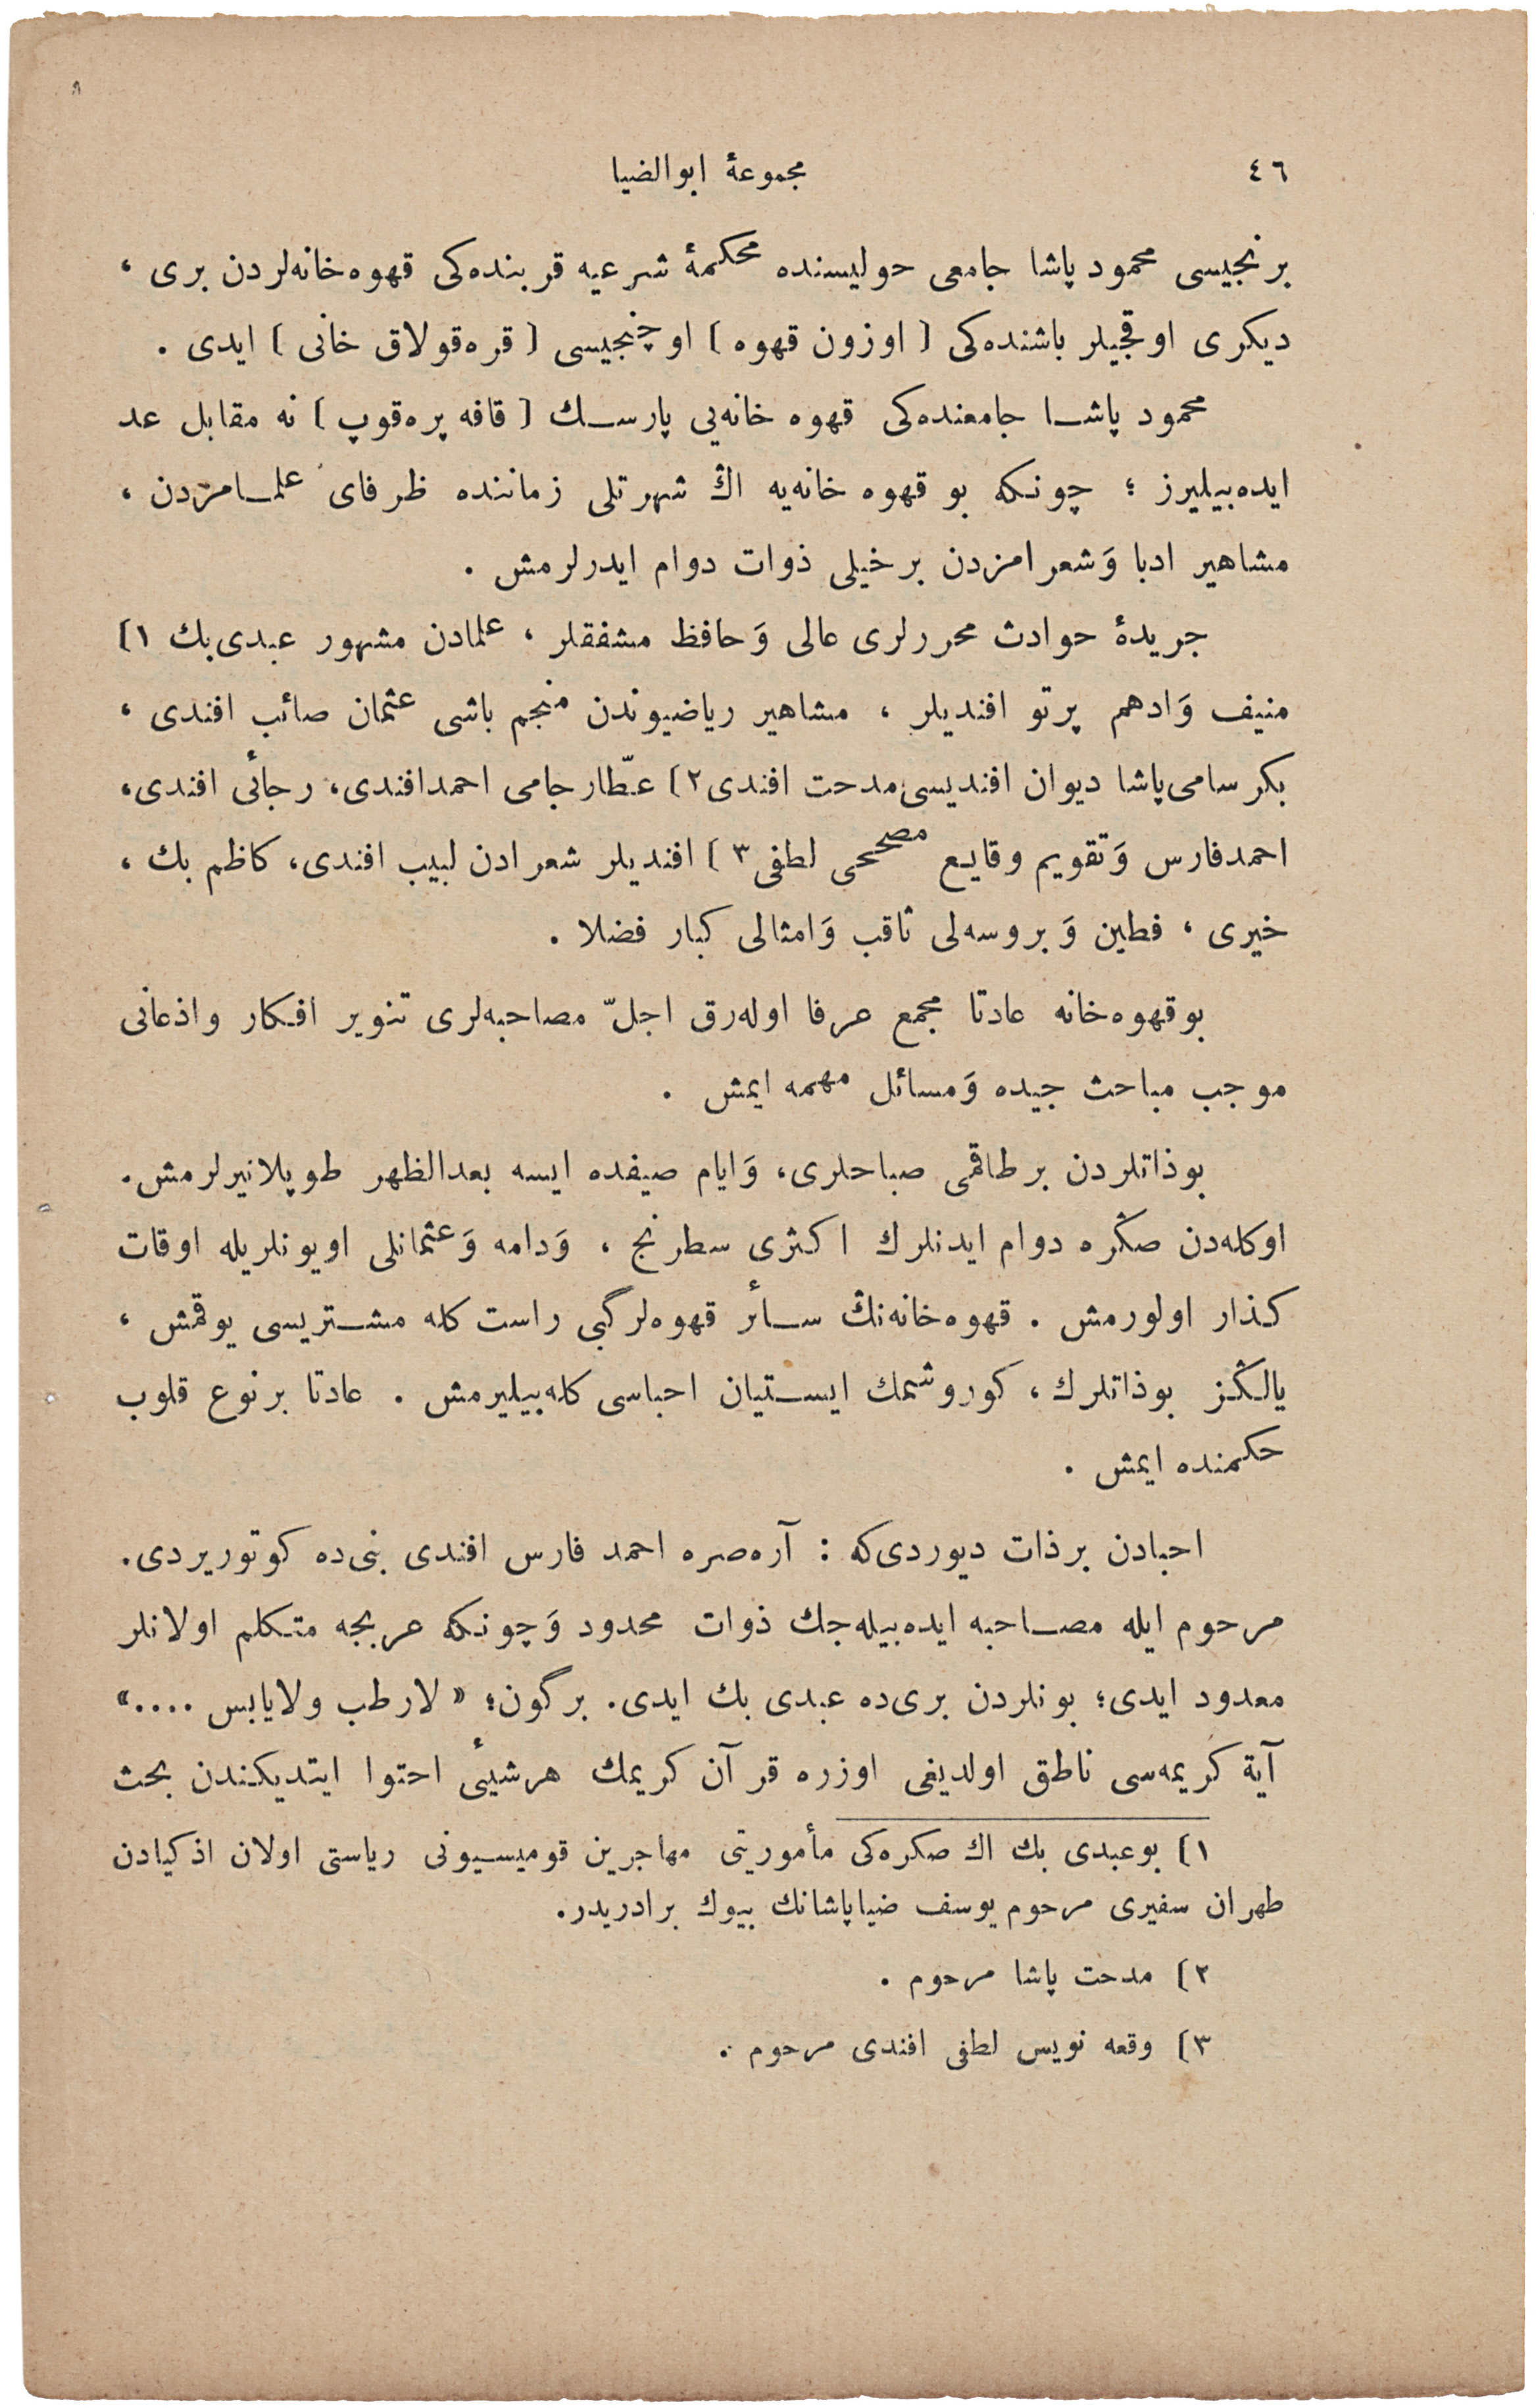 ٤٦
مجموعهٔ ابوالضيا
برنجيسی محمود پاشا جامعی حوليسنده محكمهٔ شرعيه قربنده‌كی قهوه‌خانه‌لردن بری ،
ديكری اوقجيلر باشنده‌كی [ اوزون قهوه ] اوچنجيسی [ قره‌قولاق خانی ] ايدی .
محمود پاشا جامعنده‌كی قهوه خانه‌يی پارسك [ قافه پره‌قوپ ] نه مقابل عد
ايده‌بيليرز ؛ چونكه بو قهوه خانه‌يه اڭ شهرتلی زماننده ظرفای علمامزدن ،
مشاهير ادبا وَشعرامزدن برخيلی ذوات دوام ايدرلرمش .
جريدهٔ حوادث محررلری عالی وَحافظ مشفقلر ، علمادن مشهور عبدی‌بك ١]
منيف وَادهم پرتو افنديلر ، مشاهير رياضيوندن منجم باشی عثمان صائب افندی ،
بكر سامی‌پاشا ديوان افنديسی‌مدحت افندی٢] عطّارجامی احمدافندی، رجائی افندی،
احمدفارس وَتقويم وقايع مصححی لطفی٣ ] افنديلر شعرادن لبيب افندی، كاظم بك ،
خيری ، فطين وَبروسه‌لی ثاقب وَامثالی كبار فضلا .
بوقهوه‌خانه عادتا مجمع عرفا اوله‌رق اجلّ مصاحبه‌لری تنوير افكار واذعانی
موجب مباحث جيده وَمسائل مهمه ايمش .
بوذاتلردن برطاقمی صباحلری، وَايام صيفده ايسه بعدالظهر طوپلانيرلرمش.
اوكله‌دن صڭره دوام ايدنلرك اكثری سطرنج ، وَدامه وَعثمانلی اويونلريله اوقات
كذار اولورمش . قهوه‌خانه‌نڭ سائر قهوه‌لرگبی راست كله مشتريسی يوقمش ،
يالڭز بوذاتلرك ، كوروشمك ايستيان احباسی كله‌بيليرمش . عادتا برنوع قلوب
حكمنده ايمش .
احبادن برذات ديوردی‌كه : آره‌صره احمد فارس افندی بنی‌ده كوتوريردی.
مرحوم ايله مصاحبه ايده‌بيله‌جك ذوات محدود وَچونكه عربجه متكلم اولانلر
معدود ايدی؛ بونلردن بری‌ده عبدی بك ايدی. برگون؛ « لارطب ولايابس ....»
آية كريمه‌سی ناطق اولديغی اوزره قرآن كريمك هرشيئی احتوا ايتديكندن بحث
١] بوعبدی بك اك صكره‌كی مأموريتی مهاجرين قوميسيونی رياستی اولان اذكيادن
طهران سفيری مرحوم يوسف ضياپاشانك بيوك برادريدر.
٢] مدحت پاشا مرحوم .
٣] وقعه نويس لطفی افندی مرحوم .